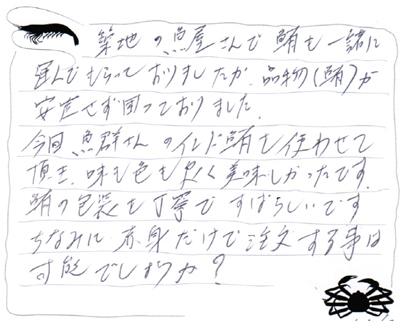 築地の魚屋さんで鮪も一緒に
運んでもらっておりましたが、品物(鮪)が
安定せず困っておりました。
今回魚群さんのインド鮪を使わせて
頂き、味も色も良く美味しかったです。
鮪の包装も丁寧ですばらしいです
ちなみに赤身だけで注文する事は
可能でしょうか?